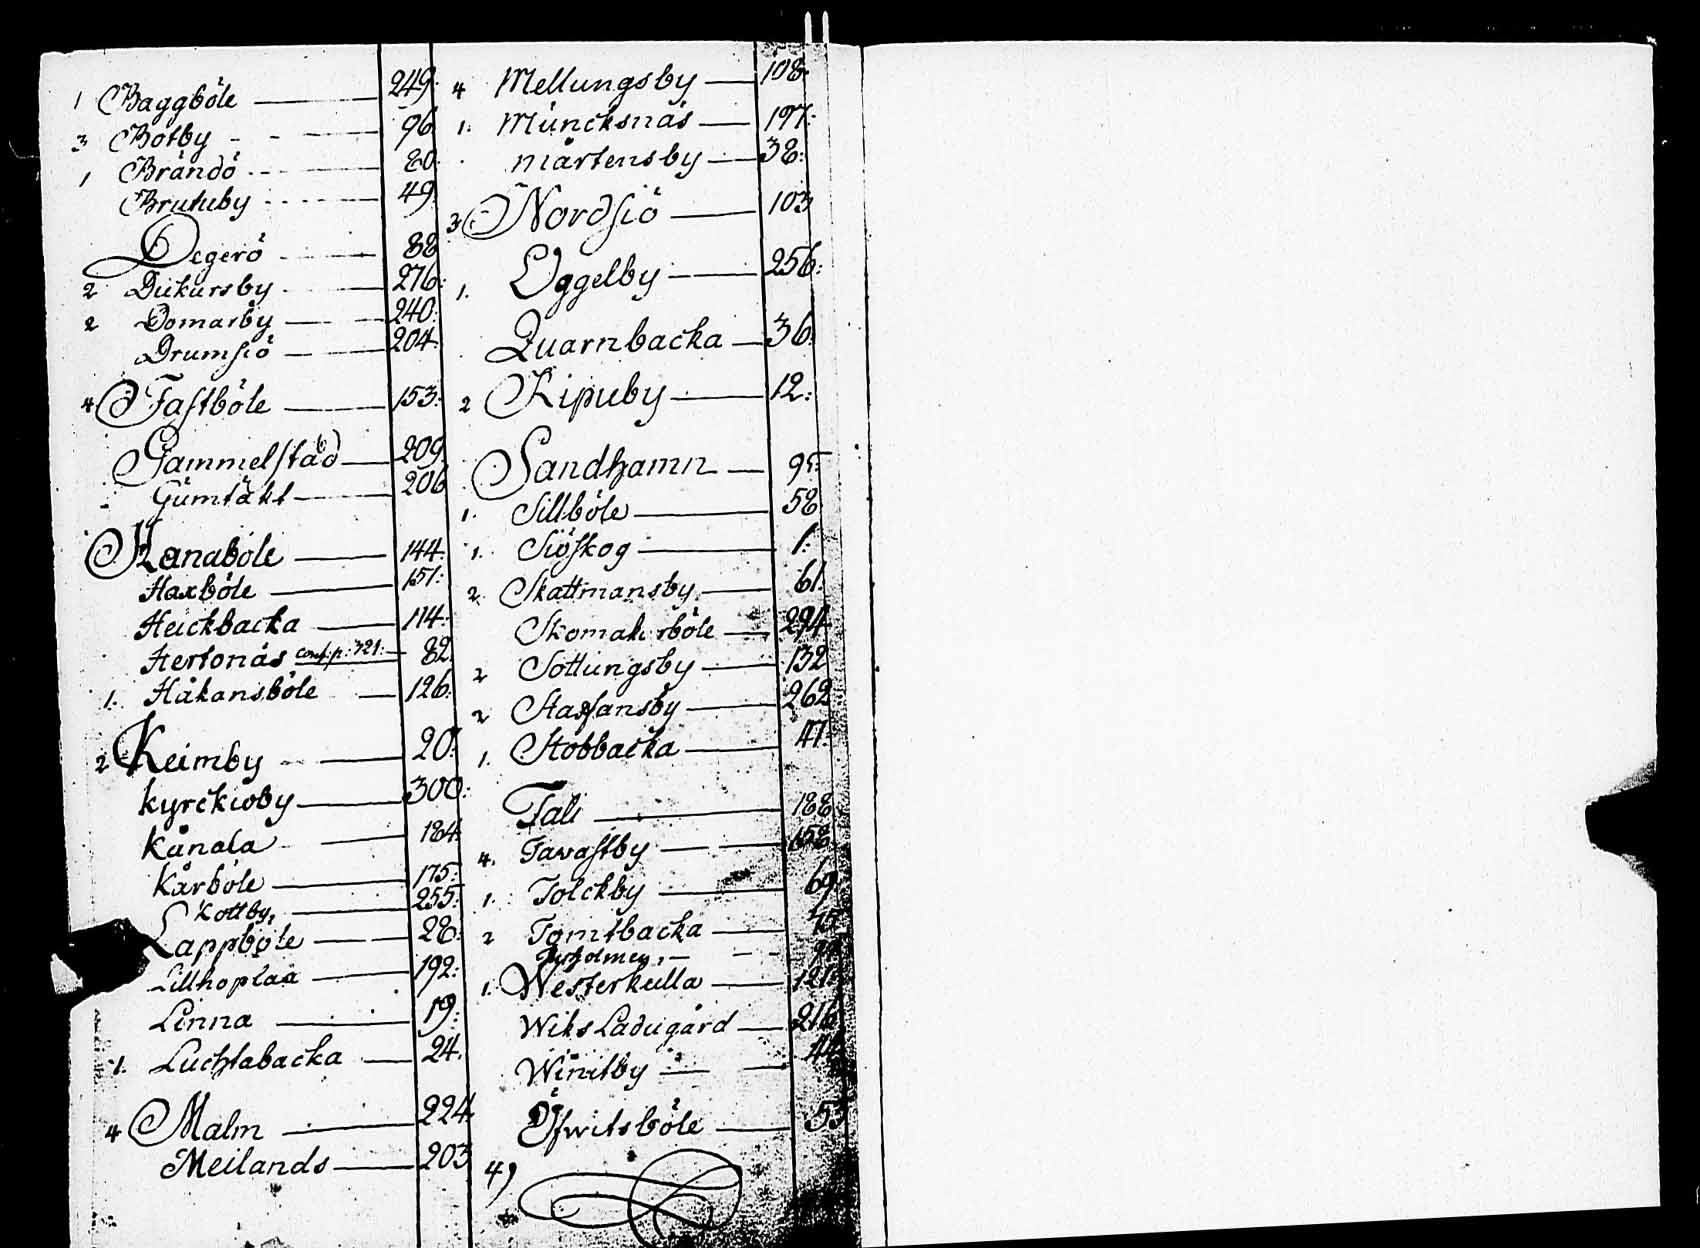 1 Baggböle 249.
3 Botby 96
1 Brändö 80.
Brutuby 49.
Degerö 88
2 Dickursby 276:
2 Domarby 240:
Drumsiö 204.
4 Fastböle 153:
Gammelstad 209.
Gumtäkt 206
Hanaböle 144.
Haxböle 151:
Heickbacka 114.
Hertonäs conf. p. 321: 82.
1. Håkansböle 126.
2 Keimby 20:
Kyrckioby 300:
Kånala 184
Kårböle 175:
Kottby, 255:
Lappböle 28:
Lillhoplax 192:
Linna 19:
1. Luchtabacka 24.
4 Malm 224.
Meilands 203
4 Mellungsby 108.
1. Muncksnäs 197:
Mårtensby 38:
3 Nordsiö 103
1. Oggelby 256:
Quarnbacka 36:
2 Ripuby 12:
Sandhamn 95:
1. Sillböle 58
1. Siöskog 1:
2. Skattmansby 61.
Skomakarböle 294
2 Sottungsby 132
2 Staffansby 262
1. Stobbacka 47:
Tali 188
4. Tavastby 158
1. Tolckby 69
2 Tomtbacka 75
1. Westerkulla 121:
Wiks Ladugård 216
Winitby 44
Öfwitsböle 53
4)